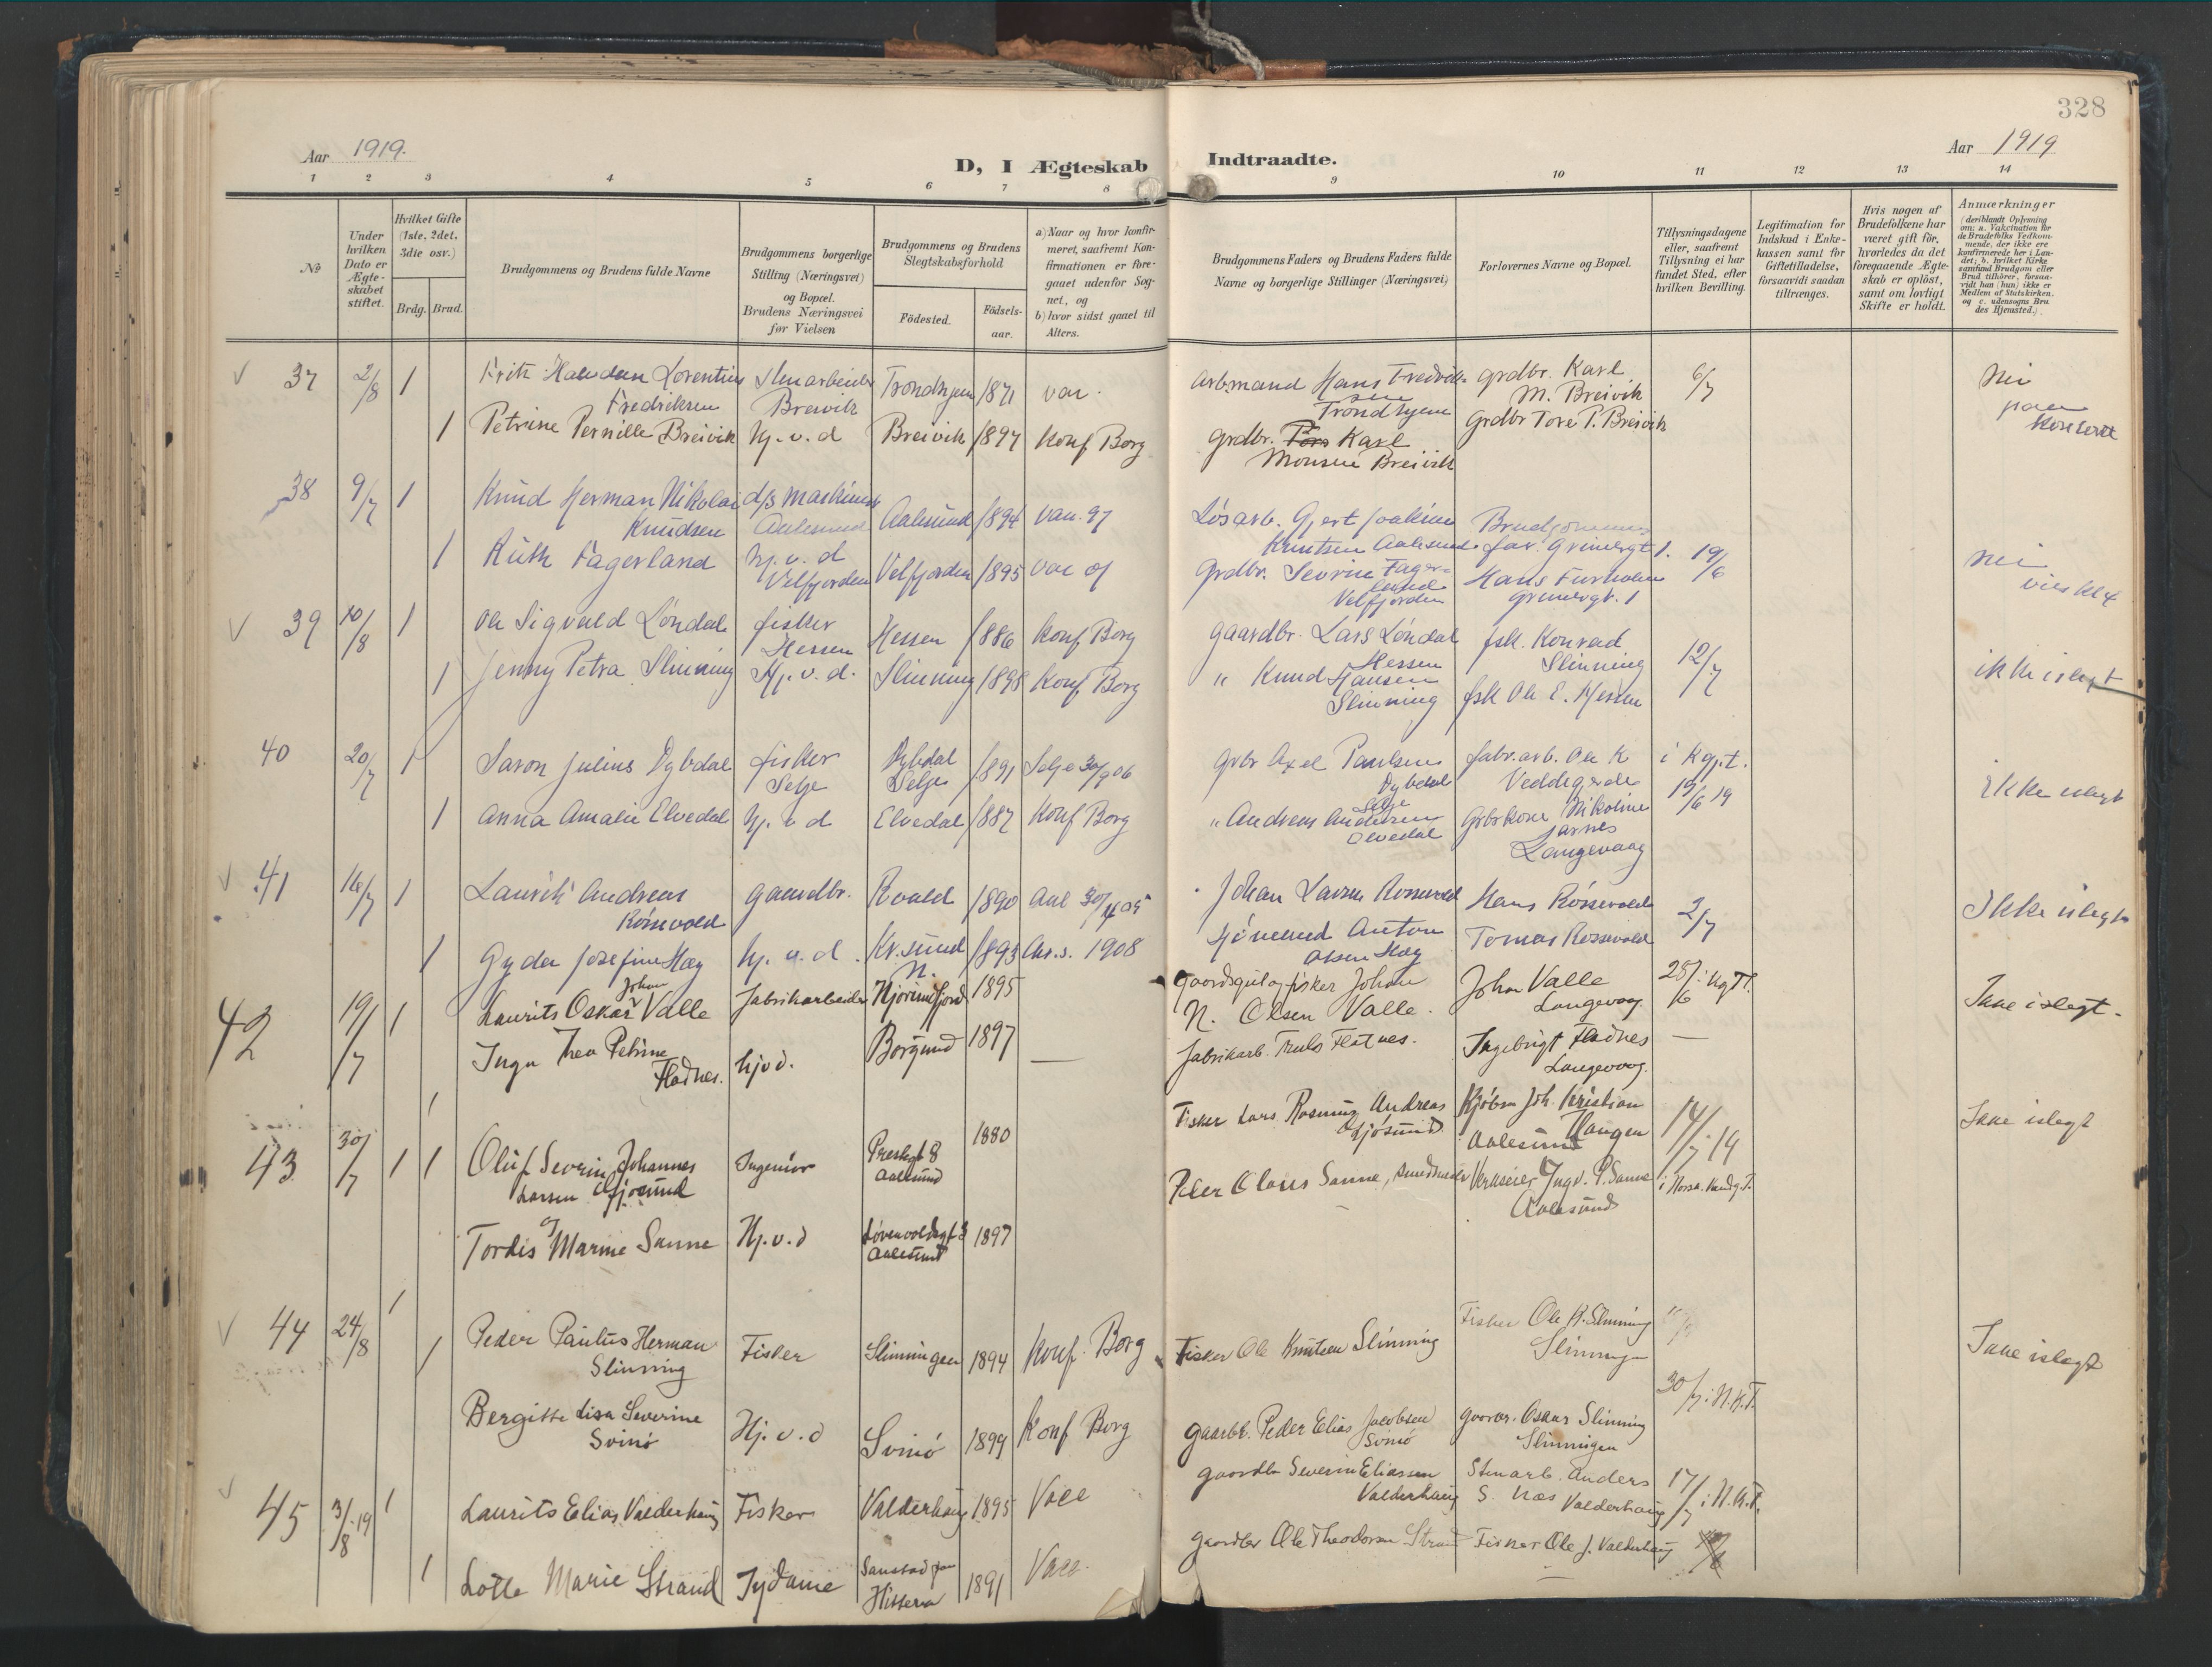 328
Aar 1919.
D, I Ægteskab Indtraadte.
Aar 1919
1 2 3 4 5 6 7 8 9 10 11 12 13 14
№
Under hvilken Dato er Ægteskabet stiftet.
Hvilket Gifte (1ste, 2det, 3die osv.)
Brdg. Brud.
Brudgommens og Brudens fulde Navne
Brudgommens borgerlige Stilling (Næringsvei) og Bopæl. Brudens Næringsvei før Vielsen
Brudgommens og Brudens Slegtskabsforhold
Födested. Födselsaar.
a) Naar og hvor konfirmeret, saafremt Konfirmationen er foregaaet udenfor Sognet, og
b) hvor sidst gaaet til Alters.
Brudgommens Faders og Brudens Faders fulde Navne og borgerlige Stillinger (Næringsvei)
Forlovernes Navne og Bopæl.
Tillysningsdagene eller, saafremt Tillysning ei har fundet Sted, efter hvilken Bevilling.
Legitimation for Indskud i Enkekassen samt for Giftetilladelse, forsaavidt saadan tiltrænges.
Hvis nogen af Brudefolkene har været gift før, hvorledes da det foregaaende Ægteskab er opløst, samt om lovligt Skifte er holdt.
Anmærkninger (deriblandt Oplysning om: a. Vakcination for de Brudefolks Vedkommende, der ikke ere konfirmerede her i Landet; b. hvilket Kirkesamfund Brudgom eller Brud tilhører, forsaavidt han (hun) ikke er Medlem af Statskirken, og c. udensogns Brudes Hjemsted.)
37 2/8 1 Fritz Halvdan Lorentius Stenarbeider Trondhjem 1871 vac. Arbmand Hans Fredrik- grdbr. Karl 6/7 Nei
Fredriksen Breivik sen Trondhjem M. Breivik
1 Petrine Pernille Breivik hj. v. d Breivik 1897 Konf Borg grdbr. Karl Grdbr Tore P. Breivik
Monsen Breivik
38 9/7 1 Knud Herman Nikolai d/s maskinist Aalesund 1894 vac. og Løsarb. Gjert Joakim Brudgommens
Knudsen Aalesund Knutsen Aalesund far. Grimergt 1. 19/6 Nei
1 Ruth Fagerland hj. v. d Velfjorden 1895 vac og Grdbr. Sevrin Fager- Hans Furholm
Velfjorden land Velfjorden Grimergt. 1
39 10/8 1 Ole Sigvald Løndal fisker Hessen 1886 Konf Borg gaardbr. Lars Løndal fsk. Konrad 12/7 ikke i slegt
Hessen Hessen Slinning
1 Jenny Petra Slinning Hj. v. d. Slinning 1898 Konf Borg " Knud Hansen fsk Ole E. Hessen
Slinning
40 20/7 1 Saron Julius Dybdal fisker Dybdal 1891 Selje 30/9 06 grbr Axel Paulsen fabr.arb. Ole K i Kgt.
Selje Selje Dybdal Selje Veddegjerde 19/6 19 Ikke islegt
1 Anna Amalie Elvedal hj. v d Elvedal 1887 Konf Borg " Andreas Andersen Grbrkone Nikoline
Elvedal Jarnes Langevaag
41 16/7 1 Laurits Andreas gaardbr. Roald 1890 Aal 30/4 05 Johan Larsen Rossevold Hans Røssevold 2/7 Ikke islegt
Røssevold
1 Gyda Josefine Hag hj. v. d. Kr.sund N. 1893 Chr.s. 1908 Anton Olsen Hag Tomas Røssevold
42 19/7 1 Laurits Oskar Johan Valle fabrikarbeider Hjørundfjord 1895 Gaardsgut og fisker Johan Johan Valle 25/6 i Kgt. Ikke i slegt.
N. Olsen Valle. Langevaag
Inga Thea Petrine hjvd. Borgund 1897 — fabrikarb. Truls Flatnes. Ingebrigt Fladnes —
Fladnes. Langevaag.
43 30/7 1 1 Oluf Severin Johannes Ingeniør Prestegt 8 1880 Fisker Lars Rasmus Andreas Kjøbm Joh. Kristian 14/7 19 Ikke islegt
Larsen Gjøsund Aalesund Gjøsund Haugen Aalesund
og
Tordis Marine Sanne Hj. v. d Løvenvoldgt 3 1897 Peder Olaus Sanne, Verkseier Ingv. P. Sanne
Aalesund Aalesund
44 24/8 1 Peder Paulus Herman Fisker Slinningen 1894 Konf. Borg Fisker Ole Knutsen Slinning Fisker Ole K. Slinning Ikke islegt
Slinning Slinningen
1 Bergitte Lisa Severine Hj. v. d Svinø 1899 Konf Borg gaarbr. Peder Elias Jacobsen gaarbr. Oskar Slinning 30/7 i N.K.T.
Svinø Svinø Slinningen
45 3/8 19 1 Laurits Elias Valderhaug Fisker Valderhaug 1895 Vacc gaardbr Severin Eliassen Stenarb. Anders 17/7 i N.K.T.
Valderhaug S. Næs Valderhaug
1 Lotte Marie Strand Sydame Hitteren 1891 Vacc. gaardbr Ole Theodorsen Strand Fisker Ole J. Valderhaug